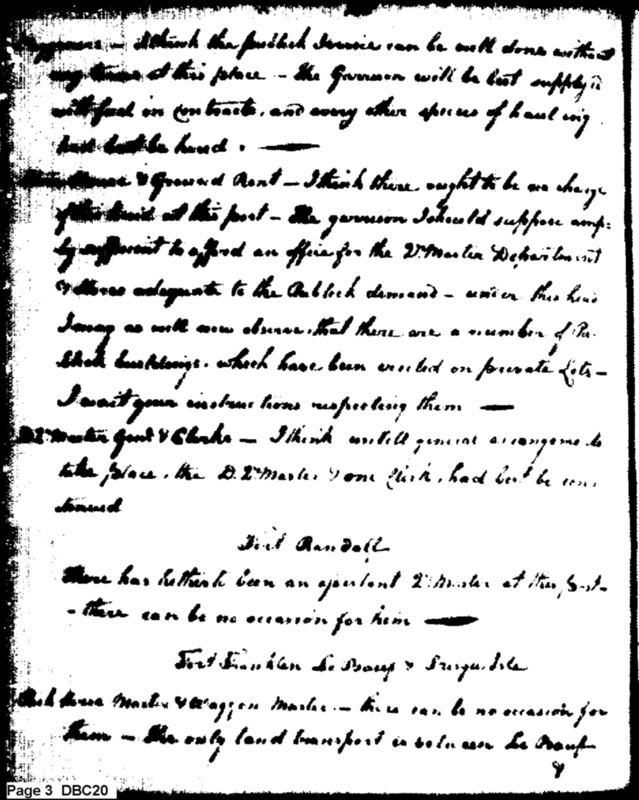 – I think the publick Service can be well done without
any teams at this place – The Garrison will be best supply'd
with fuel in contracts, and every other species of hauling
had best be hired. —
House & Ground Rent – I think there ought to be no charge
of this kind at this post – The garrison I should suppose amp-
ly sufficient to afford an office for the Qr Master Department
& stores adequate to the Publick demand – under this head
I may as well now observe, that there are a number of Pu-
blick buildings, which have been erected on private Lots –
I wait your instructions respecting them —
D. Qr Master Genl & Clerks – I think untill general arrangements
take place, the D. Qr Master & one Clerk, had best be con-
tinued
Fort Randall
There has hitherto been an assistant Qr Master at this post –
– there can be no occasion for him —
Fort Franklin Le Boeuf & Presque Isle
Pack Horse Master & Waggon Master – there can be no occasion for
them – The only land transport is between Le Boeuf
&
Page 3 DBC20